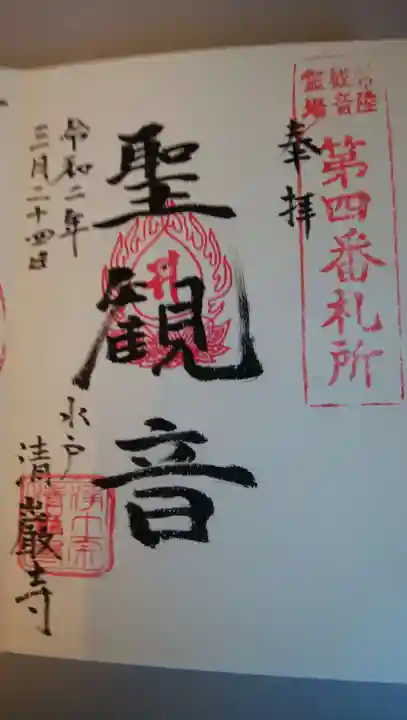 常陸
観音
霊場
第四番札所
奉拝
聖観音
令和二年
三月二十四日
水戸
清巖寺